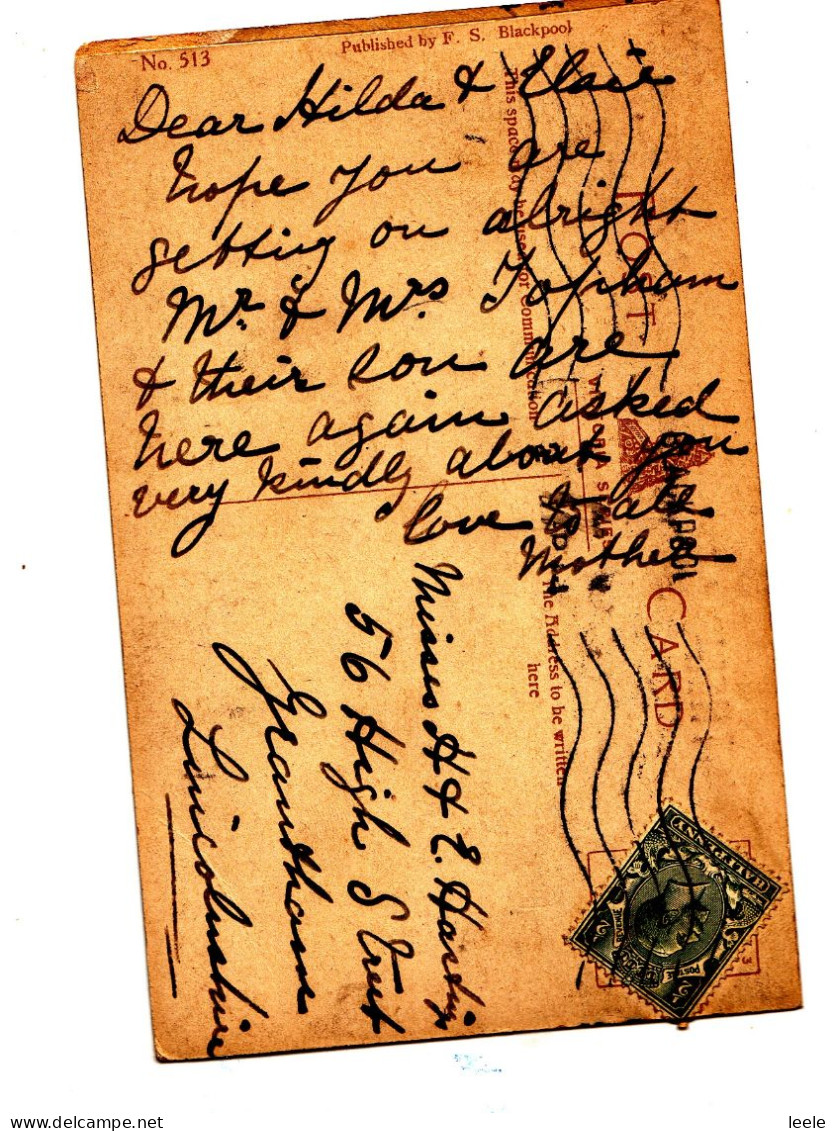 No. 513
Published by F. S. Blackpool
Dear Hilda & Elsie
hope you are
getting on alright
Mr. & Mrs Topham
& their son are
here again asked
very kindly about you
love to all
Mother
This space may be used for Communication
POST CARD
The Address to be written
here
Misses H & E. Harding
56 High Street
Grantham
Lincolnshire
BLACKPOOL
HALFPENNY
POSTAGE
REVENUE
leele